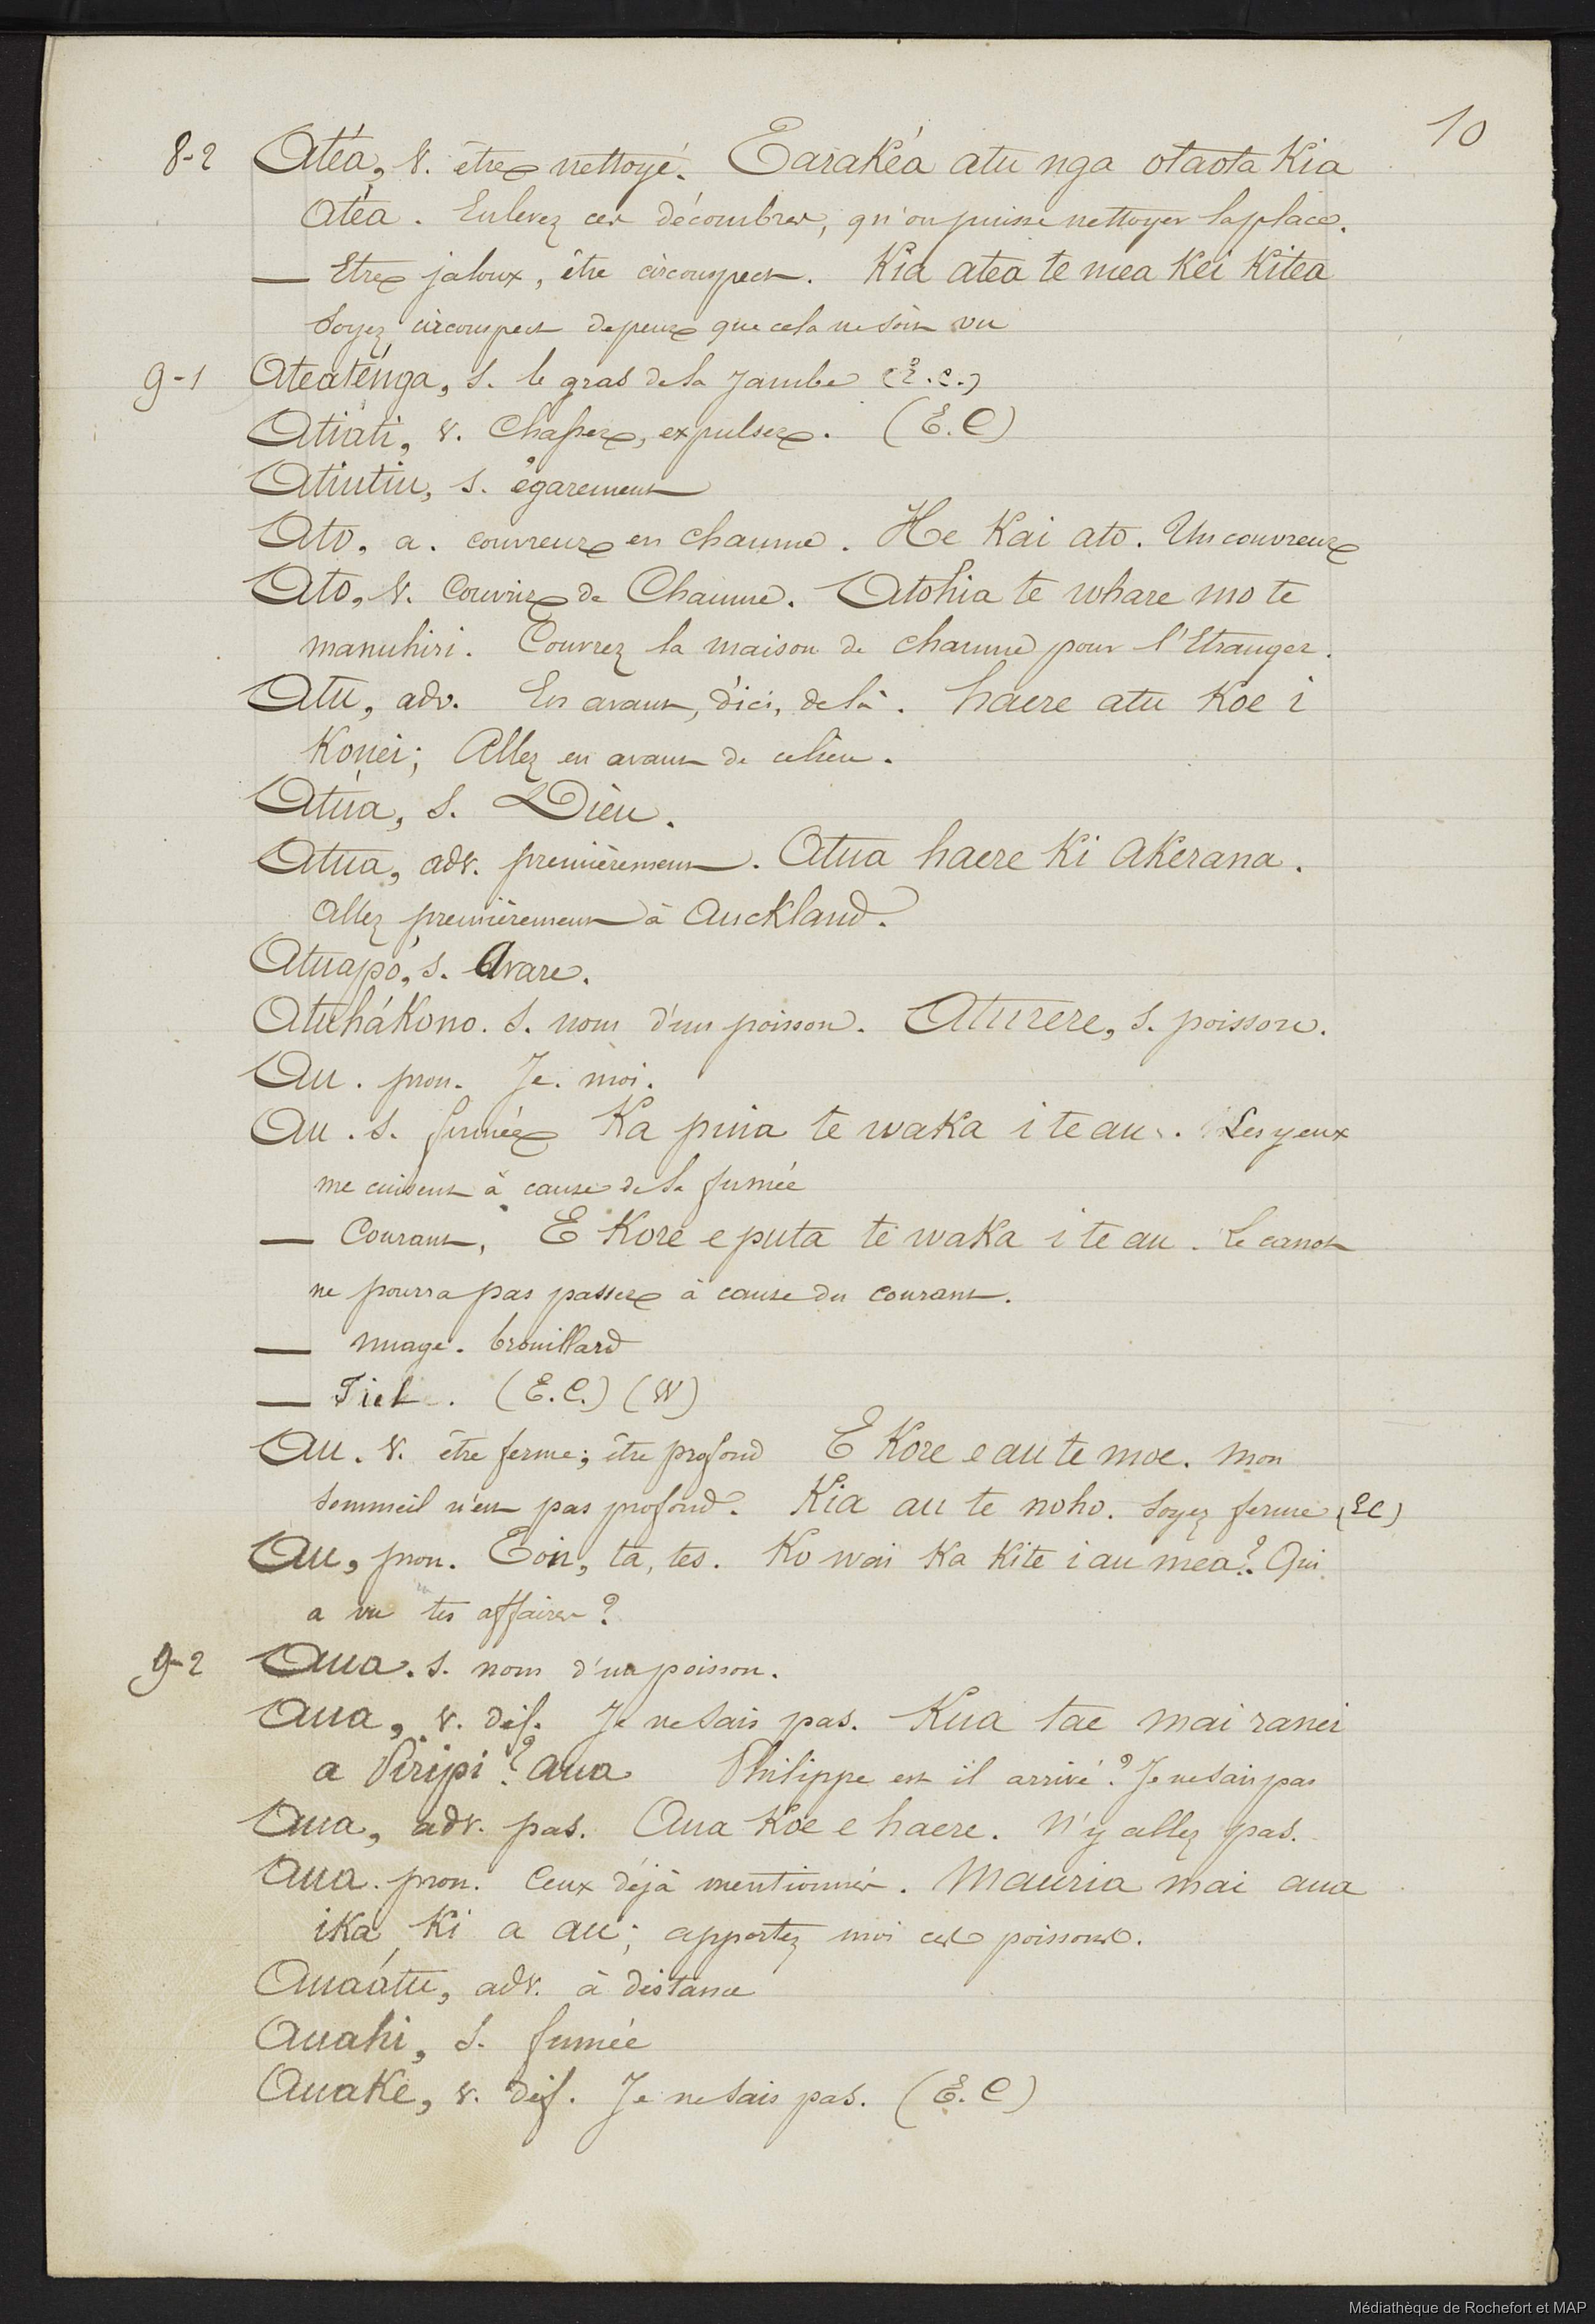 10
8-2 Atéa, v. être nettoyé. Tarakéa atu nga otaota Kia
atéa. Enlevez ces décombres, qu'on puisse nettoyer la place.
— Etre jaloux, être circonspect. Kia atea te mea Kei Kitea
Soyez circonspect de peur que cela ne soit vu
9-1 Ateaténga, s. le gras de la jambe (E.C.)
Atiati, v. Chasser, expulser. (E.C)
Atiutiu, s. égarement
Ato, a. couvreur en chaume. He Kai ato. Un couvreur
Ato, v. Couvrir de Chaume. Atohia te whare mo te
manuhiri. Couvrez la maison de chaume pour l'Etranger.
Atu, adv. En avant, d'ici, de là. haere atu Koe i
Konei; Allez en avant de ce lieu.
Atúa, s. Dieu.
Atua, adv. premièrement. Atua haere Ki Akerana.
Allez premièrement à Auckland.
Atuapó, s. Avare.
AtuháKono. s. nom d'un poisson. Aturere, s. poisson.
Au. pron. Je. moi.
Au. s. fumée Ka puia te waka i te au. Les yeux
me cuisent à cause de la fumée
— Courant, E Kore e puta te waka i te au. Le canot
ne pourra pas passer à cause du courant.
— nuage. brouillard
— Fiel. (E.C.) (W)
Au. v. être ferme; être profond E Kore e au te moe. Mon
sommeil n'est pas profond. Kia au te noho. Soyez ferme (EC)
Au, pron. Ton, ta, tes. Ko wai Ka Kite i au mea? Qui
a vu tes affaires?
9-2 Aua. s. nom d'un poisson.
Aua, v. déf. Je ne sais pas. Kua tae mai ranei
a Piripi? aua Philippe est il arrivé? Je ne sais pas
Aua, adv. pas. Aua Koe e haere. N'y allez pas.
Aua. pron. Ceux déjà mentionnés. Mauria mai aua
ika Ki a au; apportez moi ces poissons.
Auaátu, adv. à distance
Auahi, s. fumée
Auake, v. déf. Je ne sais pas. (E.C)
Médiathèque de Rochefort et MAP